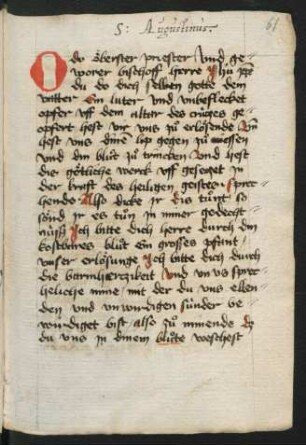 S: Augustinus.
61
O du öberster priester Und ge
worer bischoff herre Jhu xpe
du do dich selben gotte dem
vatter Ein luter und unbeflecket
opfer uff dem altar des crützes ge
opfert hest vir uns zu erlösende Un
hest uns dine lip gegen zu niessen
und din blut zu trincken Und hest
dis götliche werck uff gesetzet in
der krafft des heiligen geistes spre
chende Also dicke ir dis tugt so
sönd ir es tun in miner gedecht
nüsz Ich bitte dich herre durch din
kostbores blut ein grosses pfunt
unser erlösunge Ich bitte dich durch
die barmhertzikeit Und unus spre
cheliche mine mit der du uns ellen
den und unwirdigen sünder be
wirdiget bist also zu minende do
du uns in dinem blute weschest